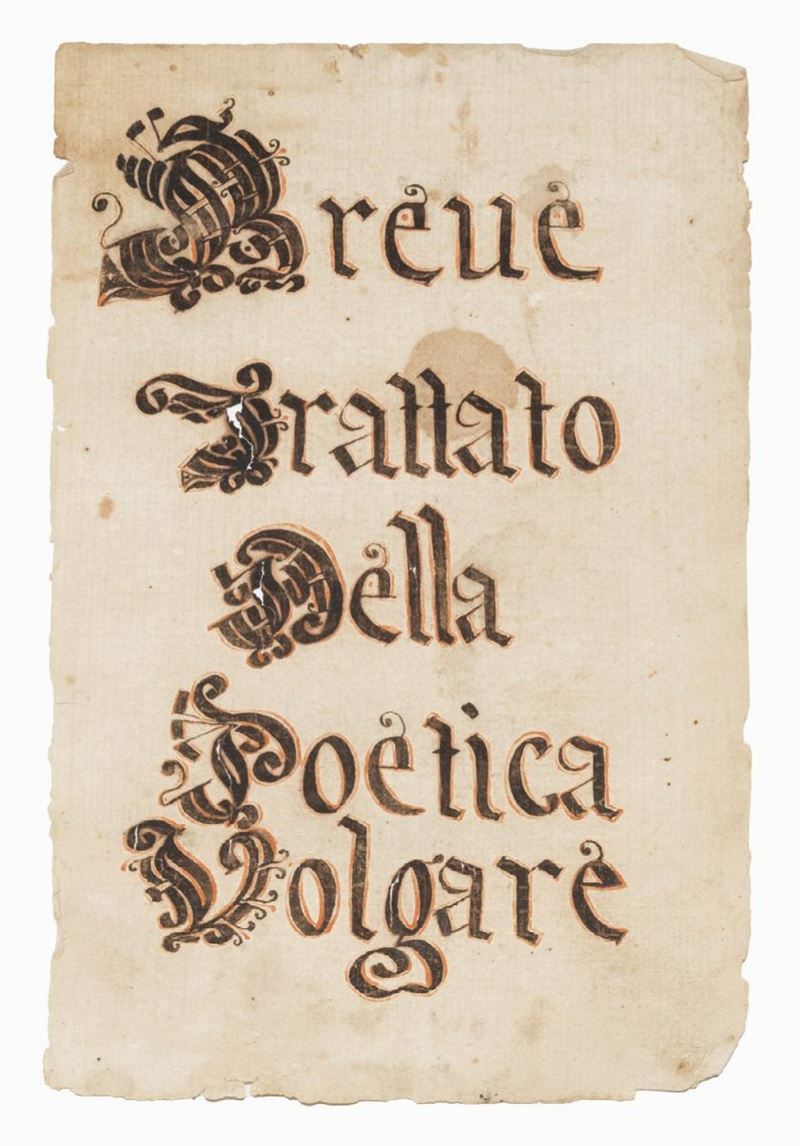 Breue
Trattato
Della
Poetica
Volgare